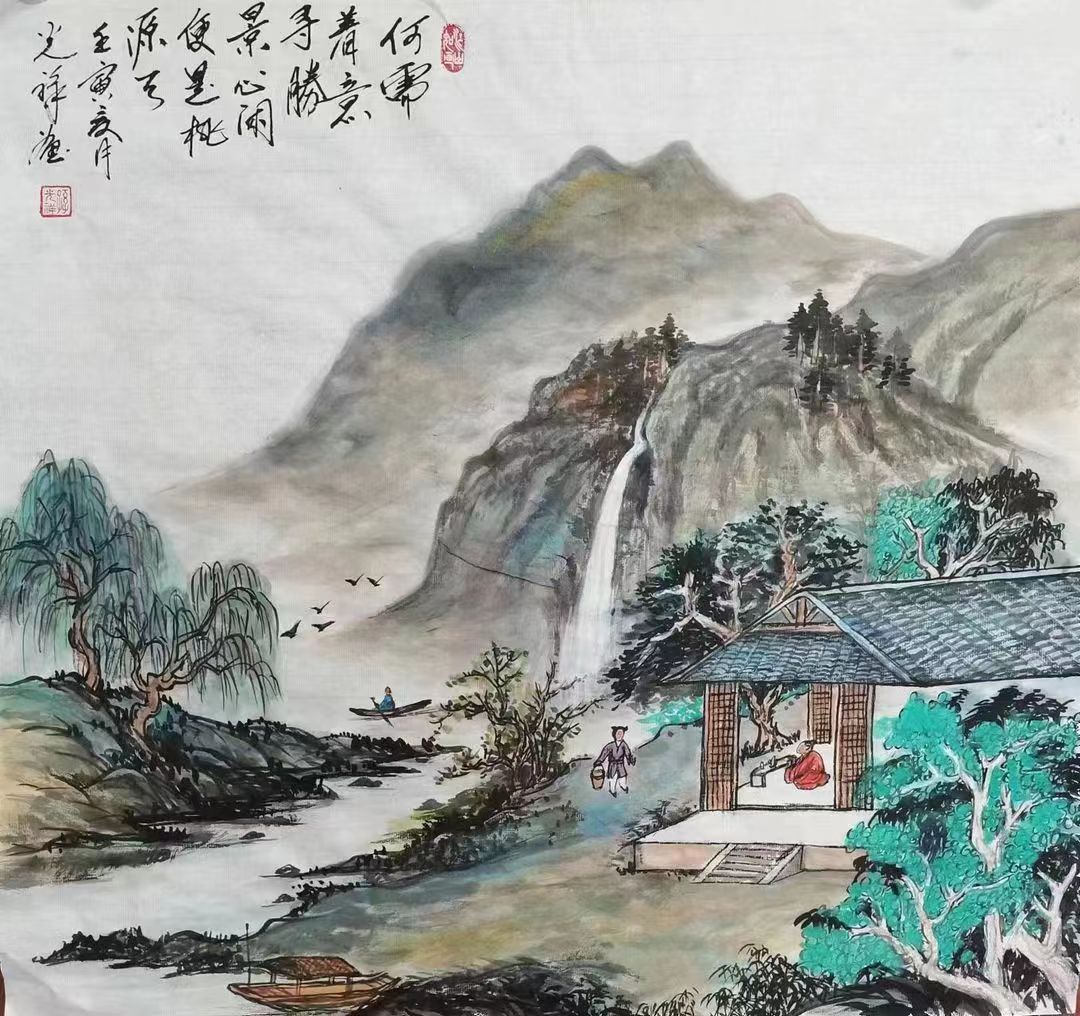 何需
着意
寻勝
景心闲
便是桃
源
壬寅夏月
光祥